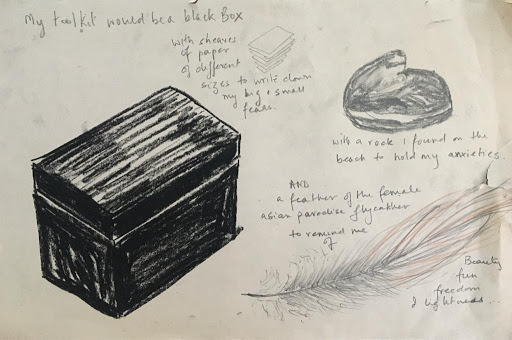 My toolkit would be a black Box
with sheaves
of paper
of different
sizes to write down
my big & small
fears.
with a rock I found on the
beach to hold my anxieties..
AND
a feather of the female
asian paradise flycatcher
to remind me
of
Beauty
fun
freedom
& lightness...